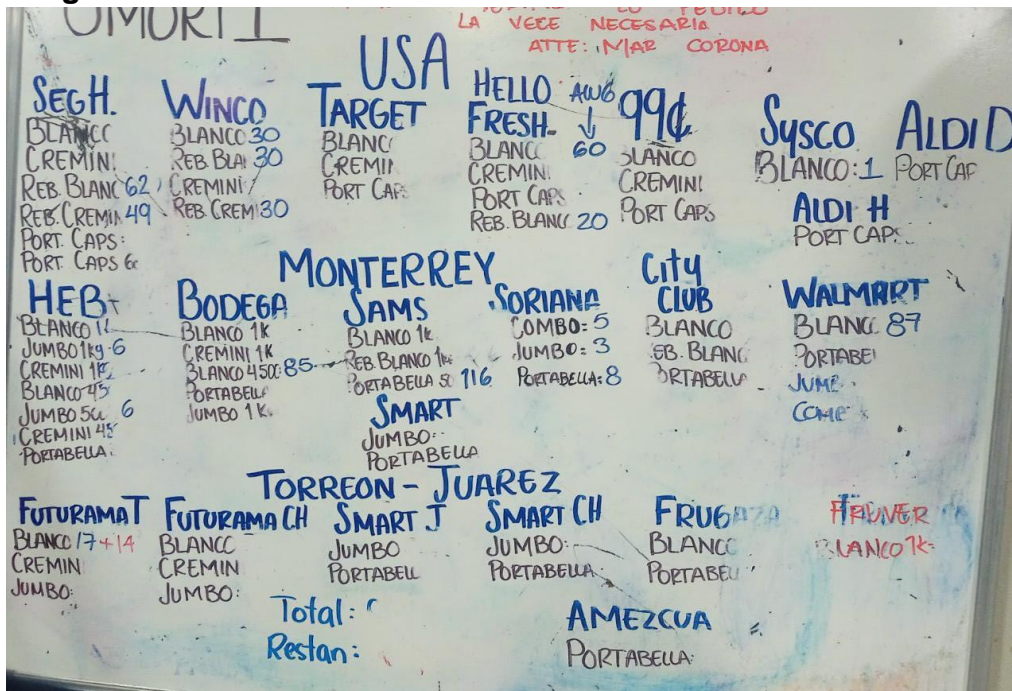 LA VECE NECESARIA
ATTE: MAR CORONA
USA
SEGH.
BLANCC
CREMINI
REB. BLANC 62
REB. CREMIN 49
PORT. CAPS:
PORT CAPS 6
WINCO
BLANCO 30
REB. BLA 30
CREMINI
REB. CREMI 30
TARGET
BLANC
CREMIN
PORT CAP
HELLO FRESH-
AWG
↓
BLANCC 60
CREMINI
PORT CAPS
REB. BLANC 20
99¢
BLANCO
CREMINI
PORT CAPS
SYSCO
BLANCO: 1
ALDI D
PORT CAP
ALDI H
PORT CAP
MONTERREY
HEB
BLANCO 1
JUMBO 1kg-6
CREMINI 1K
BLANCO 45
JUMBO 50 6
CREMINI 45
PORTABELLA
BODEGA
BLANCO 1K
CREMINI 1K
BLANCO 450: 85
PORTABELLA
JUMBO 1K
SAMS
BLANCO 1K
REB. BLANCO 1K
PORTABELLA 50 116
SMART
JUMBO:
PORTABELLA
SORIANA
COMBO: 5
JUMBO: 3
PORTABELLA: 8
CITY
CLUB
BLANCO
EB. BLANC
ORTABELLA
WALMART
BLANC 87
PORTABE
JUMB
TORREON - JUAREZ
FUTURAMA T
BLANCC 17+14
CREMIN
JUMBO:
FUTURAMA CH
BLANCC
CREMIN
JUMBO:
SMART J
JUMBO
PORTABELL
SMART CH
JUMBO:
PORTABELLA
FRUGAZA
BLANCC
PORTABELL
FRUVER
BLANCO 1K
Total:
Restan:
AMEZCUA
PORTABELLA